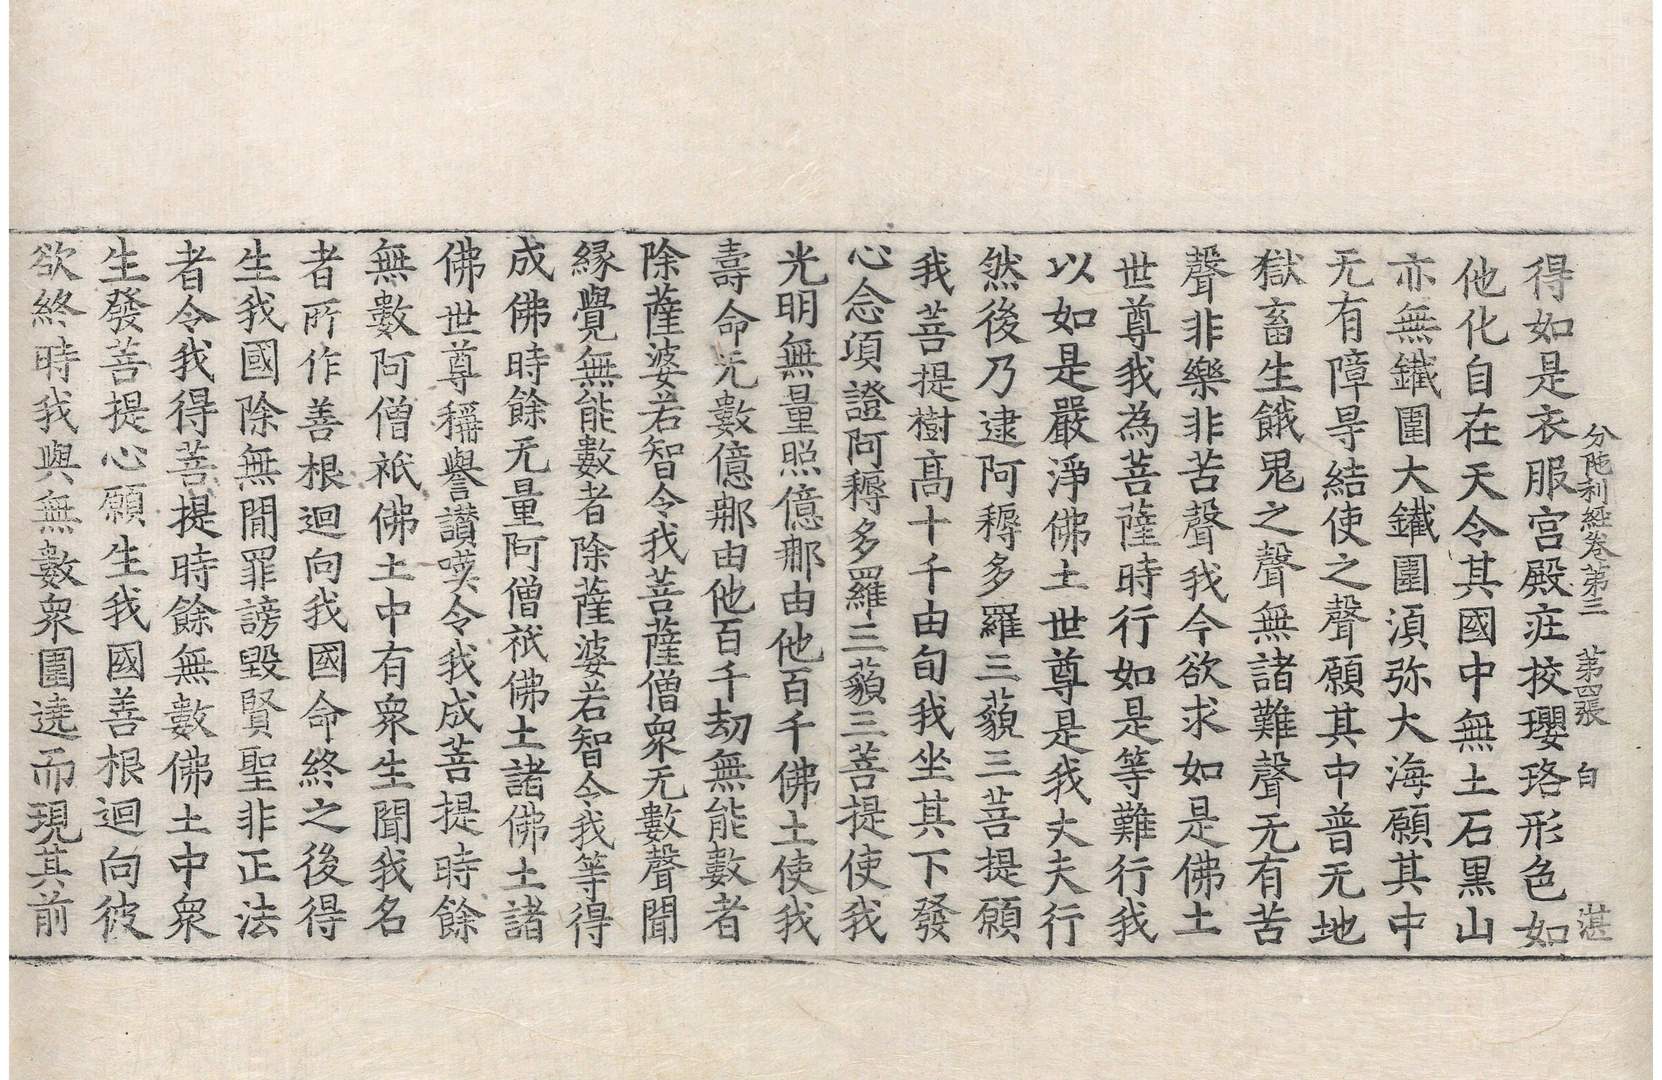 分陁利経卷苐三　苐四張　白　湛
得如是衣服宫殿㽵挍瓔珞形色如
他化自在天令其國中無土石黒山
亦無鐵圍大鐵圍湏弥大海願其中
无有障㝵結使之聲願其中普无地
獄畜生餓鬼之聲無諸難聲无有苦
聲非樂非苦聲我今欲求如是佛土
世尊我為菩薩時行如是等難行我
以如是嚴淨佛土世尊是我丈夫行
然後乃逮阿耨多羅三藐三菩提願
我菩提樹髙十千由旬我坐其下發
心念項證阿耨多羅三藐三菩提使我
光明無量照億那由他百千佛土使我
壽命无數億那由他百千劫無能數者
除薩婆若智令我菩薩僧衆无數聲聞
緣覺無能數者除薩婆若智令我等得
成佛時餘无量阿僧祇佛土諸佛土諸
佛世尊稱譽讃嘆令我成菩提時餘
無數阿僧祇佛土中有衆生聞我名
者所作善根迴向我國命終之後得
生我國除無間罪謗毀賢聖非正法
者令我得菩提時餘無數佛土中衆
生發菩提心願生我國善根迴向彼
欲終時我與無數衆圍遶而現其前